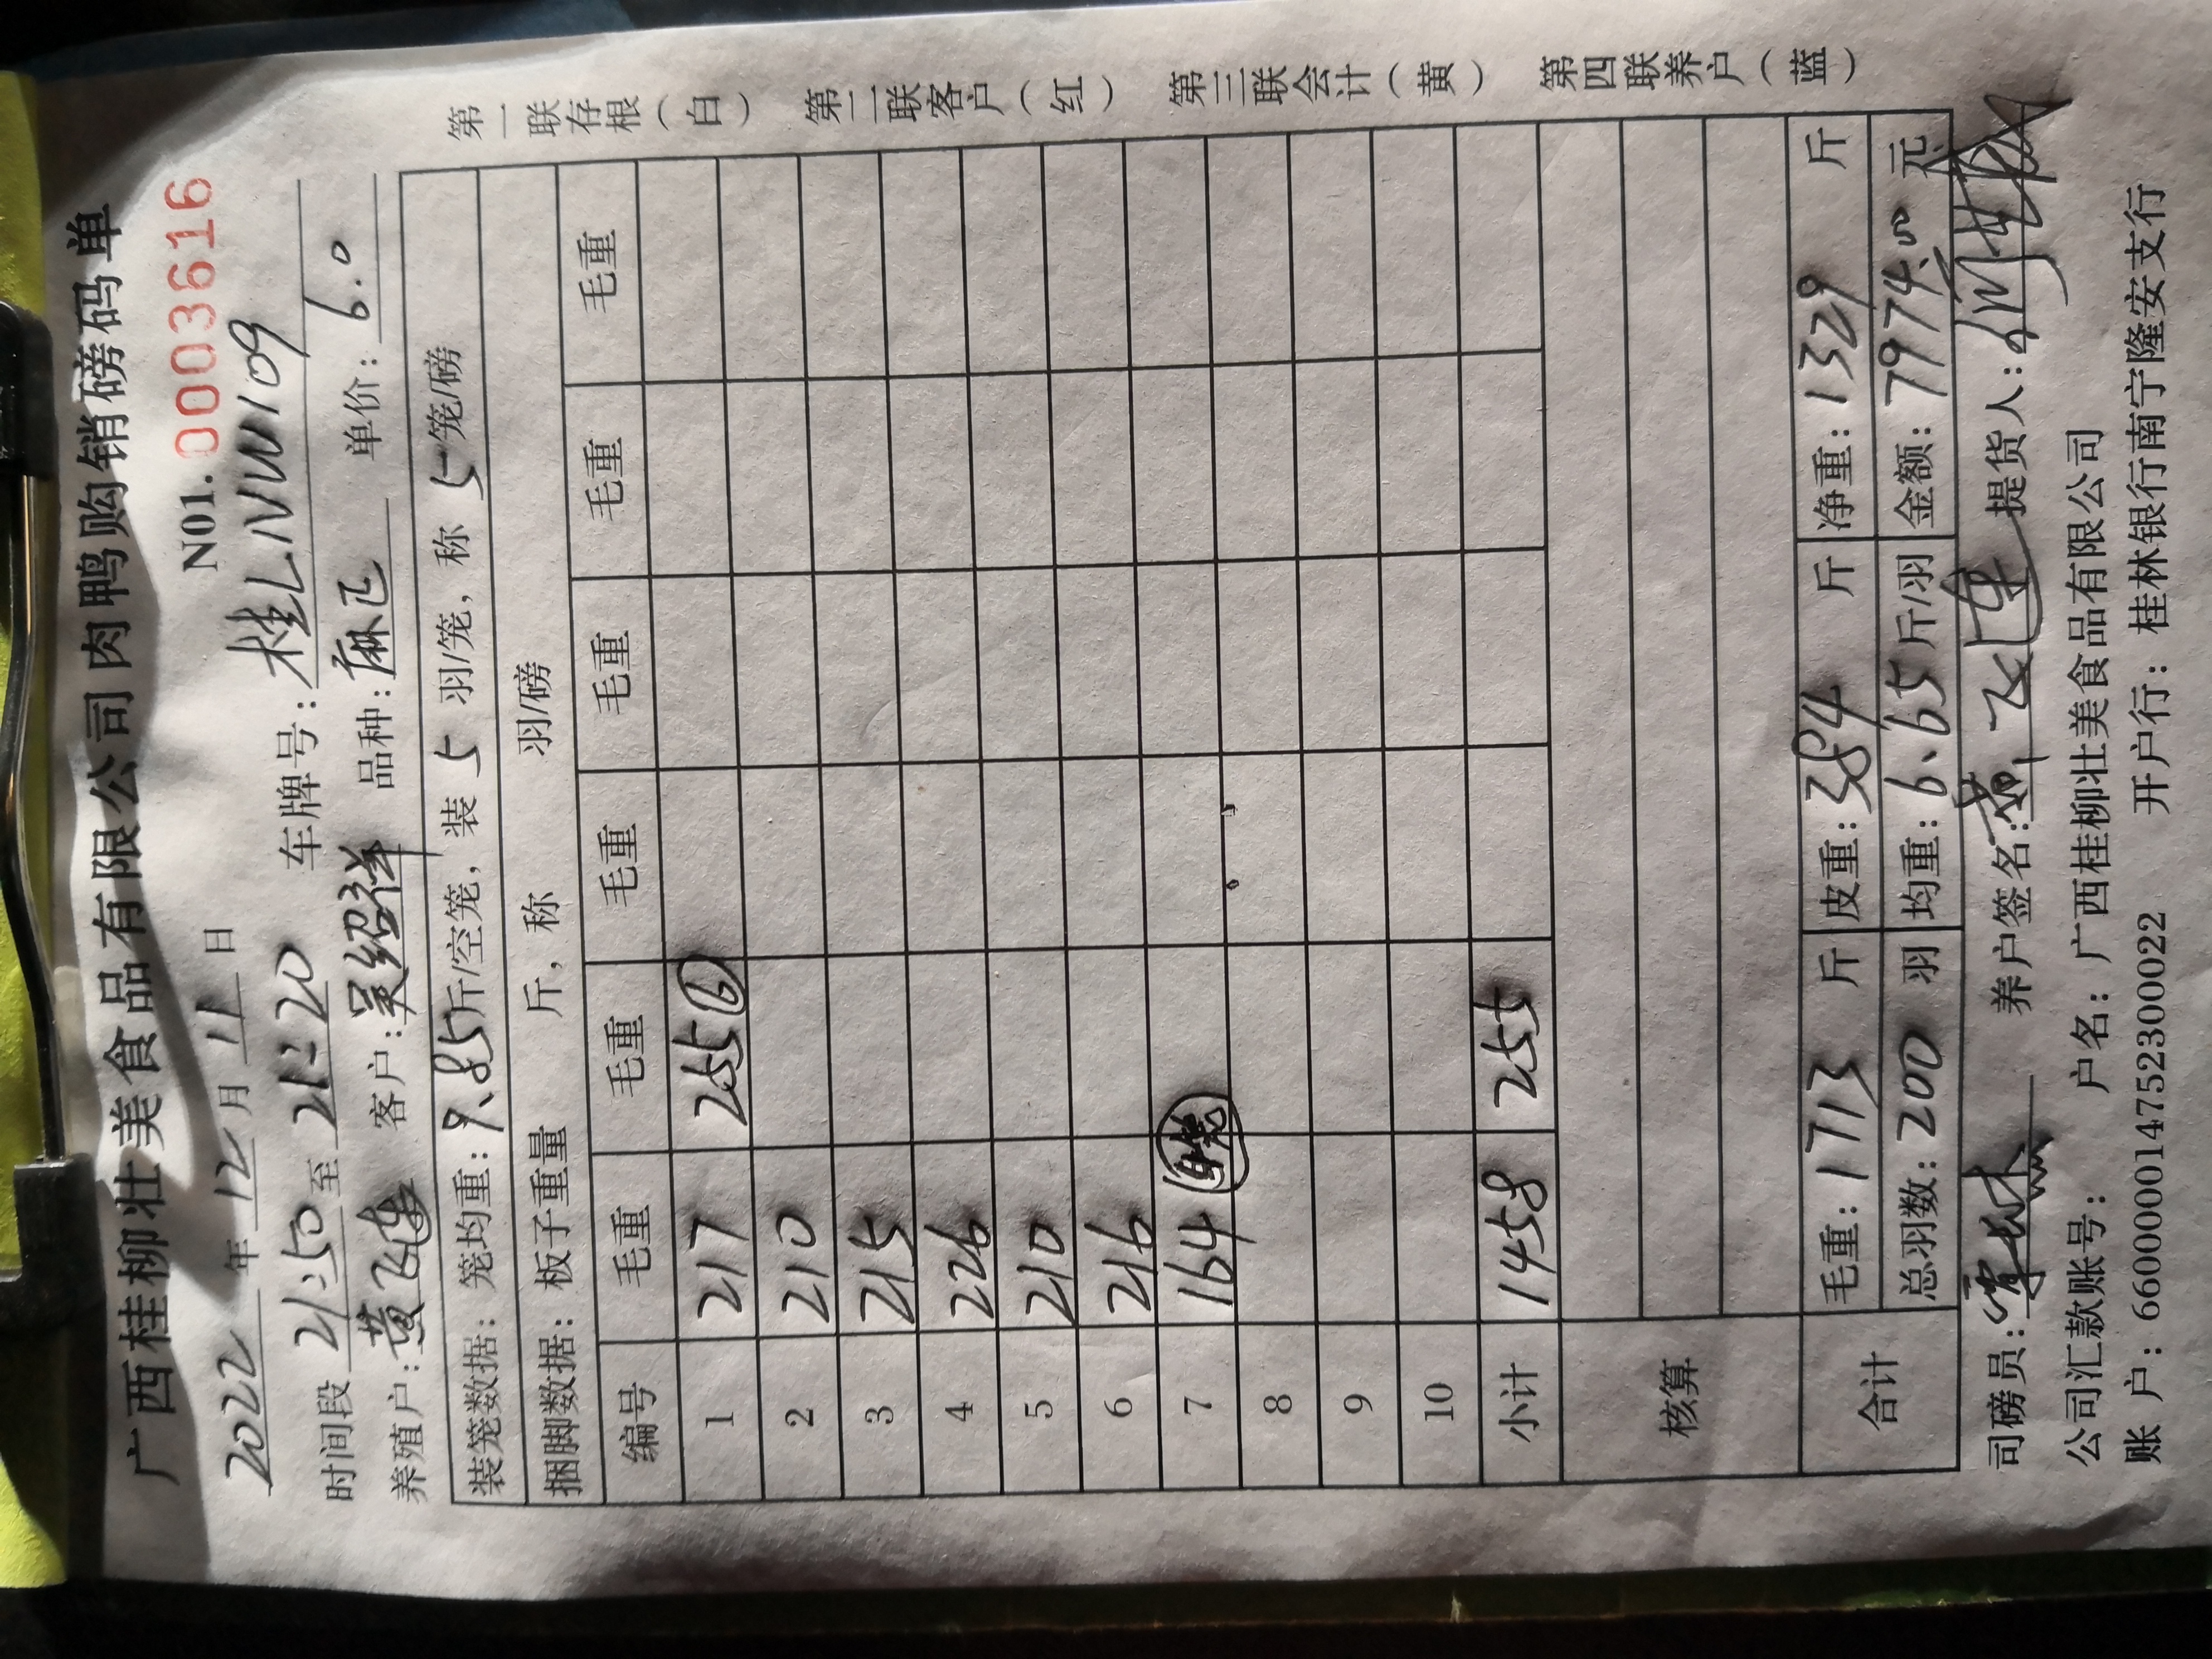 广西桂柳壮美食品有限公司肉鸭购销磅码单
2022 年 12 月 11 日 N01. 0003616
时间段 21:50 至 21:20 车牌号: 桂LNW109
养殖户: 黄飞连 客户: 吴绍祥 品种: 麻 单价: 6.0
装笼数据: 笼均重: 9.85 斤/空笼, 装 5 羽/笼, 称 5 笼/磅
捆脚数据: 板子重量 斤, 称 羽/磅
编号 毛重 毛重 毛重 毛重 毛重 毛重
1 217 255⑥
2 210
3 215
4 226
5 210
6 216
7 164 4笼
8
9
10
小计 1458 255
核算
合计 毛重: 1713 斤 皮重: 384 斤 净重: 1329 斤
总羽数: 200 羽 均重: 6.65 斤/羽 金额: 7974.00 元
司磅员: 养户签名: 黄飞连 提货人:
公司汇款账号: 户名: 广西桂柳壮美食品有限公司
账 户: 660000014752300022 开户行: 桂林银行南宁隆安支行
第一联存根(白) 第二联客户(红) 第三联会计(黄) 第四联养户(蓝)